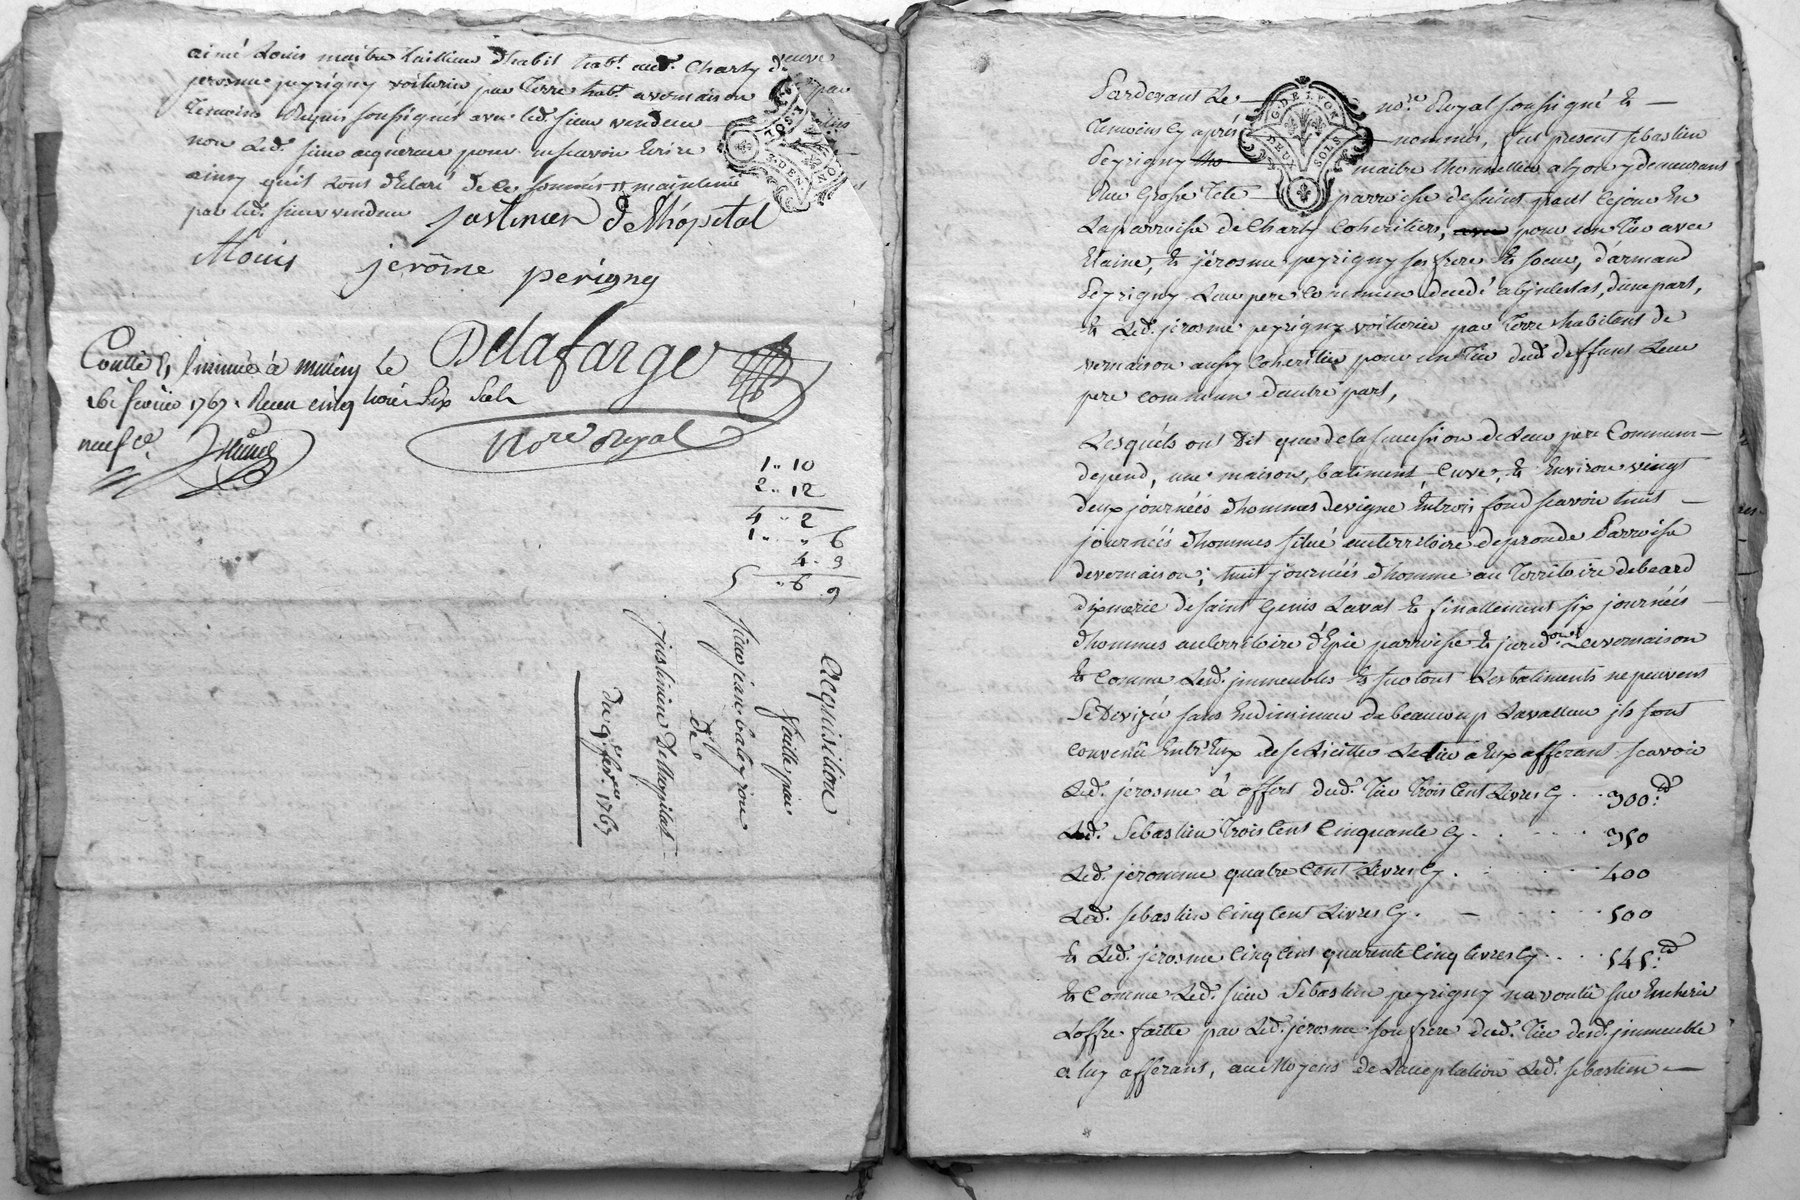 aimé Louis maitre tailleur d'habit habt. aud. Charly &
jerosme peyrigny voiturier par Terre habt. a vernaison
Temoins Requis soussignés avec led. sieur vendeur
non Led. sieur acquereur pour ne scavoir Ecrire
ainsy quil Lont déclaré de ce sommés
par led. sieur vendeur
justinien Delhôpital
ALouis jerôme perigny
Delafarge
Nore Royal
Controllé à millery le
16e fevrier 1767. Receu cinq livres six sols
neuf
1 .. 10
2 .. 12
4 .. 2
1 .. .. 6
4 .. 3
5 .. 6 9
Acquisition
Sieur jean
de
justinien Delhopital
Du 9e fevr. 1767
G. DE LYON
DEUX SOLS
Pardevant Le nore. Royal soussigné &
Temoins cy après nommés, fut present sebastien
Peyrigny maitre a Lyon y demeurant
Rue Grosse Tete parroisse de saint paul
La parroisse de Charly Coheritiers, pour un Tier avec
Etaine, & jérosme peyrigny ses frere & soeur, d'armand
Peyrigny Leur pere commun decedé abjntestat, dune part,
& Led. jerosme peyrigny voiturier par Terre habitant de
vernaison aussy Coheritier pour un Tier dud. deffunt Leur
pere commun d'autre part,
Lesquels ont Dit que de la succession de Leur pere Commun
depend, une maison, batiment, Cuve, & Environ vingt
deux journées d'hommes de vigne En trois fond scavoir huit
journées d'hommes situé au territoire de pronde Parroisse
de vernaison; huit journées d'homme au Territoire de beard
dixmerie de saint Genis Laval & finallement six journées
d'hommes au territoire d'Epie parroisse & jurid.on de vernaison
& Comme Lesd. jmmeubles & surtout Les batiments ne peuvent
Se Divizer sans En diminuer de beaucoup La valleur jls sont
Convenû Entr'Eux de se Liciter Le tier a Eux afferant scavoir
Led. jerosme a offert dud. Tier Trois Cent Livres Cy . . 300.lt
Led. Sebastien Trois Cent Cinquante Cy . . . . 350
Led. jeromme quatre Cent Livres Cy . . . . 400
Led. sebastien Cinq Cent Livres Cy . — . . . . 500
& Led. jerosme Cinq Cent quarente Cinq Livres Cy . . . 545.lt
& Comme Led. sieur Sebastien peyrigny na voulu sur Encherir
L'offre faitte par Led. jerosme son frere dud. Tier desd. jmmeuble
a luy afferant, au Moyens de Lacceptation Led. sebastien —